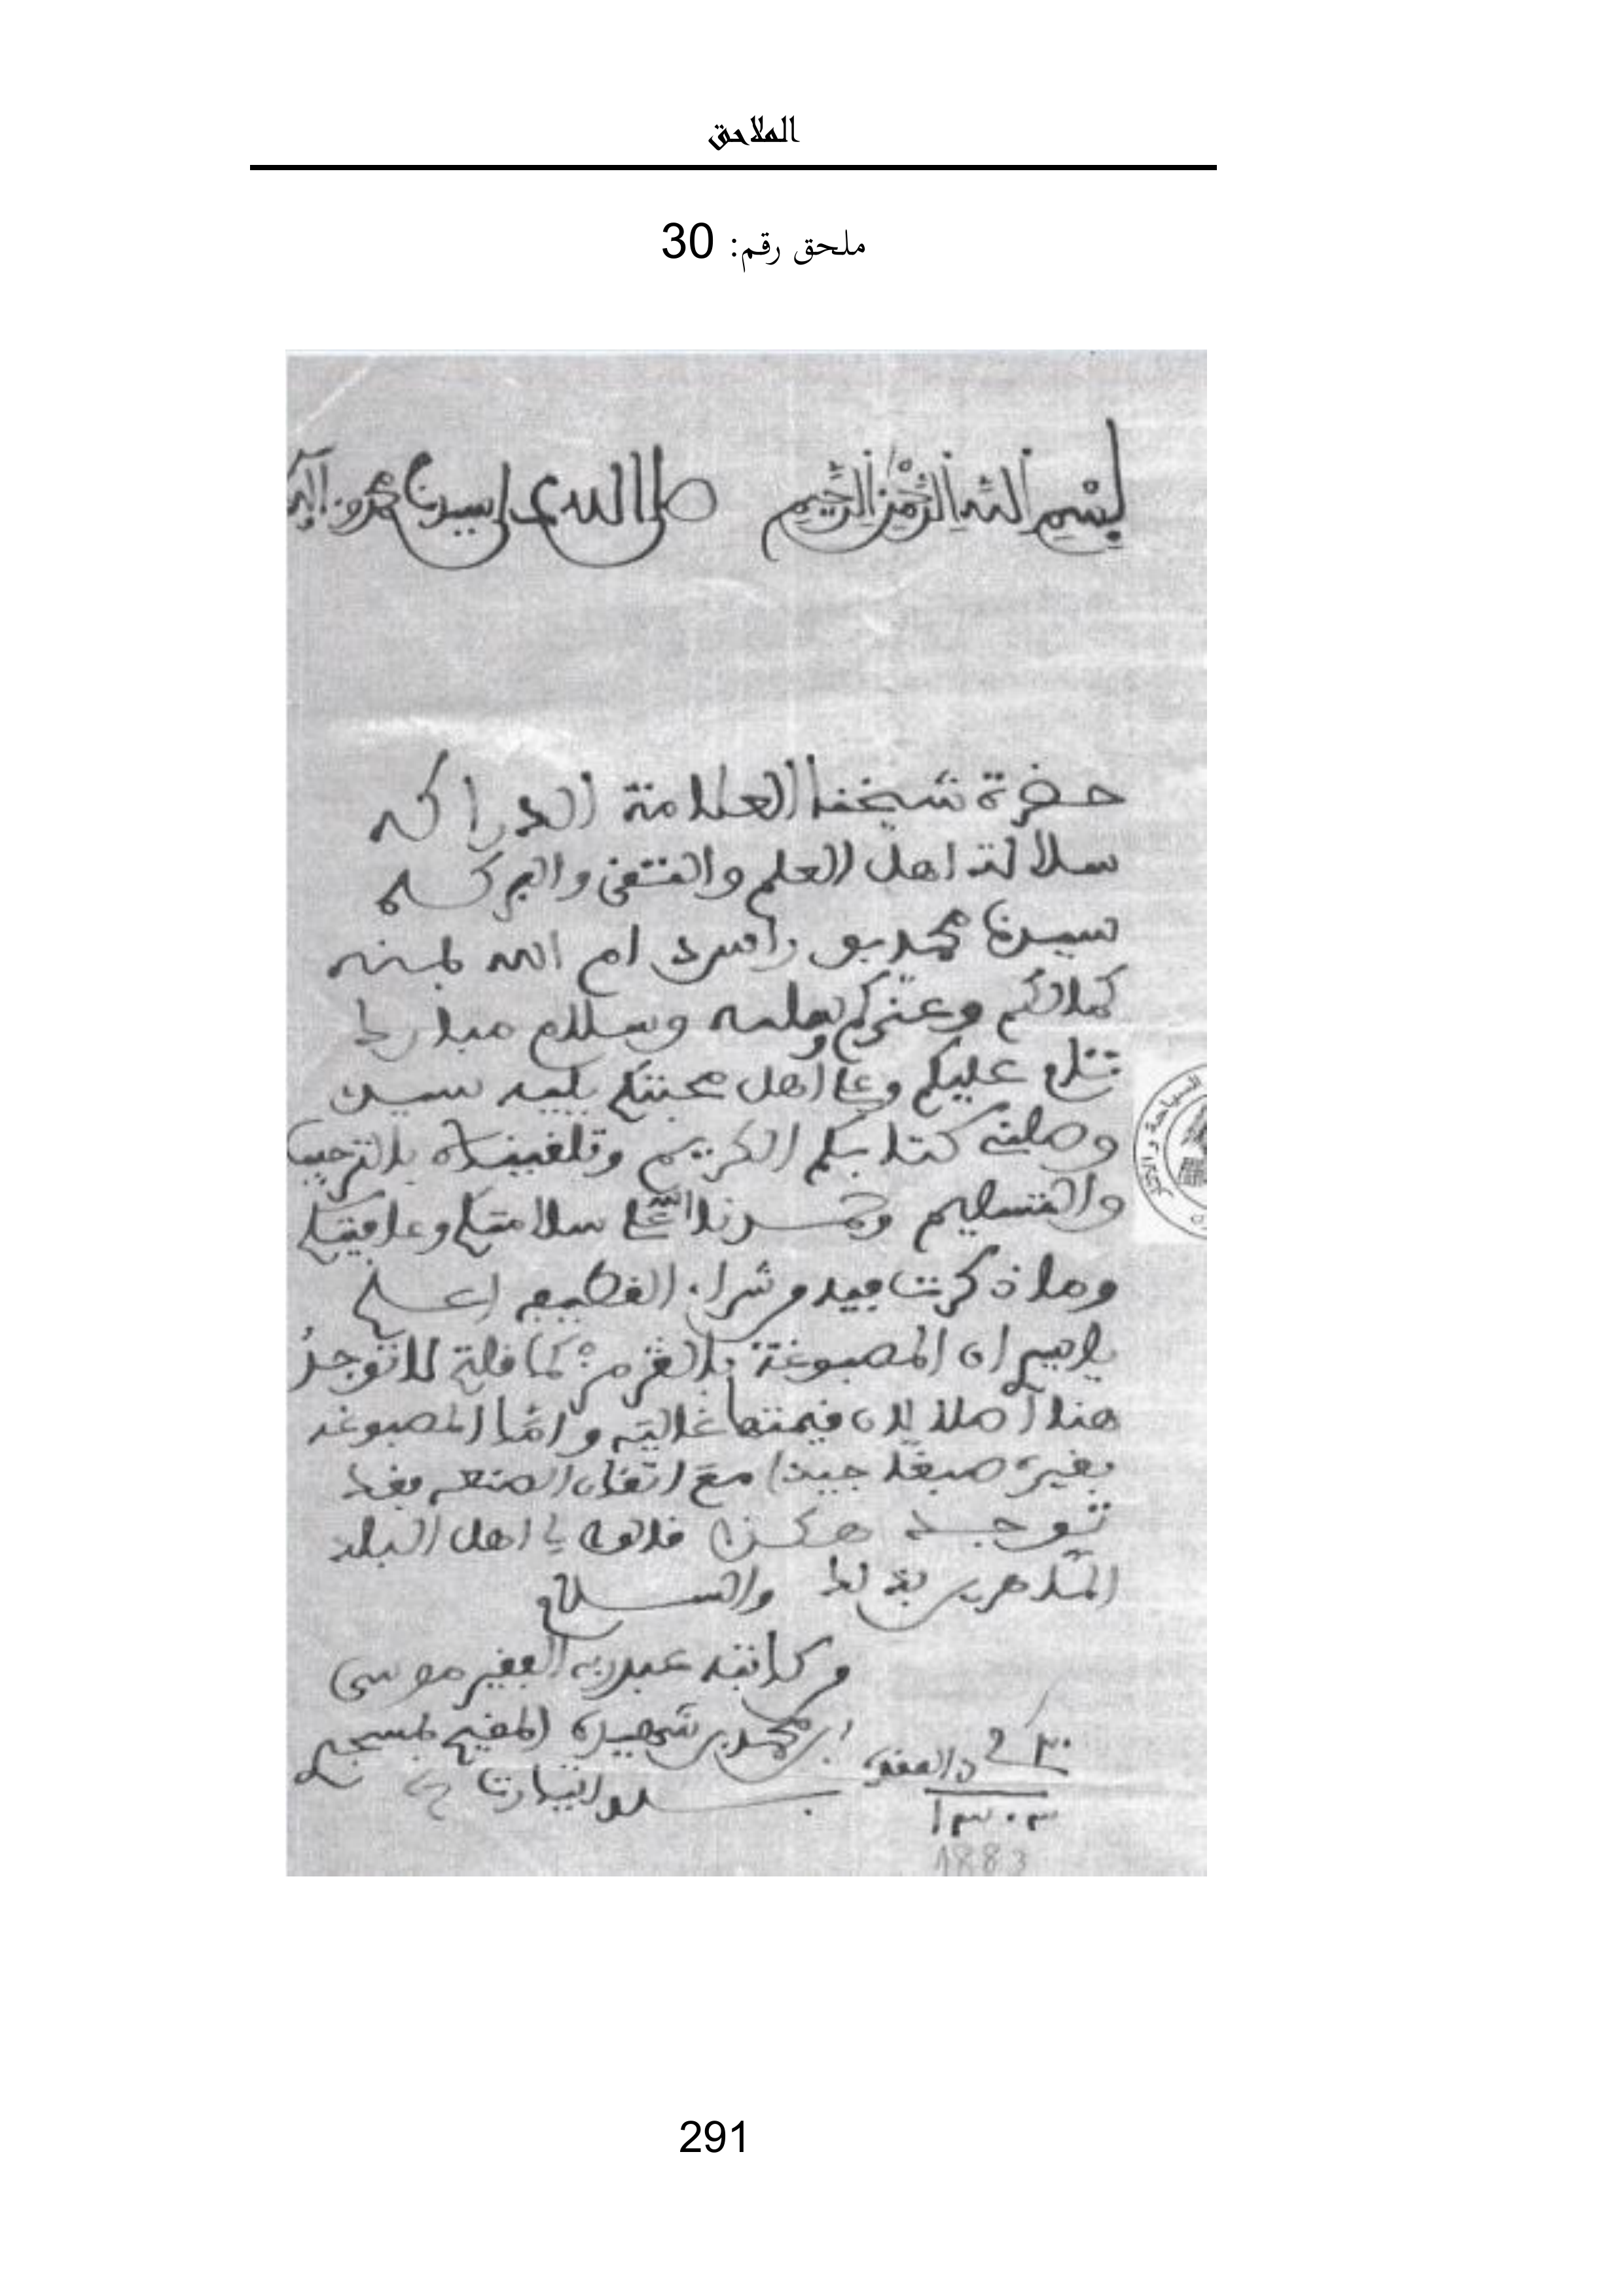 الملاحق
ملحق رقم: 30
بِسْمِ اللَّهِ الرَّحْمَنِ الرَّحِيمِ صلى الله على سيدنا محمد وآله
حضرة شيخنا العلامة الدراكه
سلالة اهل العلم والتقى والبركه
سيدنا محمد بو راس دام الله بمنه
كمالكم وعزكم وسلام مبارك
تام عليكم وعلى اهل محبتكم
وصلني كتابكم الكريم وتلقيناه بالترحيب
والتسليم وحمدنا الله على سلامتكم وعافيتكم
وما ذكرت فيه من شراء القطيفه اعلم
ان المصبوغة بالقرمز كما قلتم لا توجد
هنا اصلا لان قيمتها غالية وأما المصبوغة
بغيره صبغًا جيدا مع اتقان الصنعه فقد
توجد هكذا قالو لي اهل البلد
الماهرين بذلك والسلام
وكاتبه عبد ربه الفقير موسى
بن محمد بن المقيم بمسجد
٣٠ ذي القعدة
١٣٠٣
1883
السياحة و
291